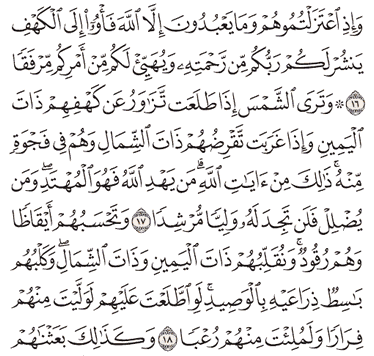 وَإِذِ ٱعۡتَزَلۡتُمُوهُمۡ وَمَا يَعۡبُدُونَ إِلَّا ٱللَّهَ فَأۡوُۥٓاْ إِلَى ٱلۡكَهۡفِ
يَنشُرۡ لَكُمۡ رَبُّكُم مِّن رَّحۡمَتِهِۦ وَيُهَيِّئۡ لَكُم مِّنۡ أَمۡرِكُم مِّرۡفَقٗا
١٦ ۞ وَتَرَى ٱلشَّمۡسَ إِذَا طَلَعَت تَّزَٰوَرُ عَن كَهۡفِهِمۡ ذَاتَ
ٱلۡيَمِينِ وَإِذَا غَرَبَت تَّقۡرِضُهُمۡ ذَاتَ ٱلشِّمَالِ وَهُمۡ فِي فَجۡوَةٖ
مِّنۡهُۚ ذَٰلِكَ مِنۡ ءَايَٰتِ ٱللَّهِۗ مَن يَهۡدِ ٱللَّهُ فَهُوَ ٱلۡمُهۡتَدِۖ وَمَن
يُضۡلِلۡ فَلَن تَجِدَ لَهُۥ وَلِيّٗا مُّرۡشِدٗا ١٧ وَتَحۡسَبُهُمۡ أَيۡقَاظٗا
وَهُمۡ رُقُودٞۚ وَنُقَلِّبُهُمۡ ذَاتَ ٱلۡيَمِينِ وَذَاتَ ٱلشِّمَالِۖ وَكَلۡبُهُم
بَٰسِطٞ ذِرَاعَيۡهِ بِٱلۡوَصِيدِۚ لَوِ ٱطَّلَعۡتَ عَلَيۡهِمۡ لَوَلَّيۡتَ مِنۡهُمۡ
فِرَارٗا وَلَمُلِئۡتَ مِنۡهُمۡ رُعۡبٗا ١٨ وَكَذَٰلِكَ بَعَثۡنَٰهُمۡ